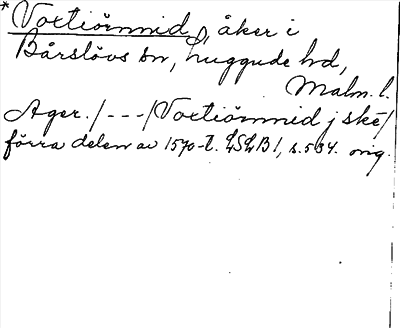 *Voxtiörnnid, åker i
Bårslövs sn, Luggude hd,
Malm. l.
Ager. /---/ Voxtiörnnid j ske/
förra delen av 1570-t. LSLB1, s. 534. orig.